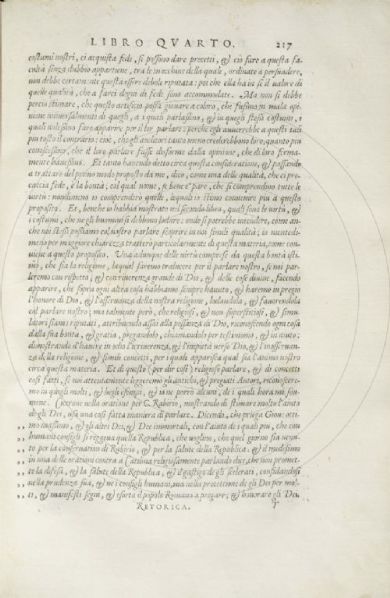 LIBRO QVARTO. 217
costumi nostri, ci acquista fede, si possino dare precetti, & ciò fare a questa fa-
cultà senza dubbio appartiene, tra le incombenze della quale, ordinate a persuadere,
non debbe certamente questa essere debole riputata: poi che ella ha in se il valore di
quelle qualità, che a farci degni di fede sono accommodate. Ma non si debbe
perciò stimare, che questo artificio possa giovare a coloro, che fussino in mala opi-
nione universalmente di quegli, a i quali parlassino, & in quegli stessi costumi, i
quali volessino fare apparire per il lor parlare: perche egli avverrebbe a questi tali
più tosto il contrario: cioè, che gli auditori tanto meno crederebbono loro, quanto più
conoscessino, che il loro parlare fusse disforme dalla opinione, che di loro ferma-
mente havessino. Et tanto havendo detto circa questa consideratione, & passando
a trattare del primo modo proposto da me, dico, come una delle qualità, che ci pro-
caccia fede, è la bontà; col qual nome, se bene pare, che si comprendino tutte le
virtù: nondimeno io comprendo quelle, le quali io stimo convenire più à questo
proposito. Et, benche io habbia mostrato nel secondo libro, quali sono le virtù, &
i costumi, che ne gli huomini si debbono lodare: onde si potrebbe intendere, come an-
che noi stessi possiamo col nostro parlare scoprire in noi simili qualità; io nientedi-
meno per maggiore chiarezza tratterò particolarmente di questa materia, come con-
viene a questo proposito. Una adunque delle virtù comprese da questa bontà isti-
mo, che sia la religione, la qual faremo tralucere per il parlare nostro, se noi par-
leremo con rispetto, & con riverenza grande di Dio, & delle cose divine, facendo
apparire, che sopra ogni altra cosa habbiamo sempre havuto, & haremo in pregio
l'honore di Dio, & l'osservanza della nostra religione, lodandola, & favorendola
col parlare nostro; ma talmente però, che religiosi, & non superstitiosi, & simu-
latori siamo riputati, attribuendo assai alla possanza di Dio, riconoscendo ogni cosa
dalla sua bontà, & gratia, pregandolo, chiamandolo per testimonio, & in aiuto;
dimostrando d'havere in odio l'irriverenza, & l'impietà verso Dio, & l'inosservan-
za della religione, & simili concetti, per i quali apparisca qual sia l'animo nostro
circa questa materia. Et di questo (per dir così) religioso parlare, & di concetti
così fatti, se noi attentamente leggeremo gli antichi, & pregiati Autori, riconosceremo
in quegli molti, & begli esempi, & io ne porrò alcuni, de i quali hora mi sov-
viene. Cicerone nella oratione per C. Rabirio, mostrando di stimare molto l'aiuto
de gli Dei, usa una così fatta maniera di parlare. Dicendo, che priega Giove otti-
,, mo massimo, & gli altri Dei, & Dee immortali, con l'aiuto de i quali più, che con
,, humani consigli si reggeva quella Republica, che voglino, che quel giorno sia venu-
,, to per la conservation di Rabirio, & per la salute della Republica. Et il medesimo
,, in una delle orationi contra a Catilina religiosamente parlando dice, che non promet-
,, te la difesa, & la salute della Republica, & il gastigo de gli scelerati, confidandosi
,, nella prudenza sua, & ne i consigli humani, ma nella protettione de gli Dei per mol-
,, ti, & manifesti segni, & esorta il popolo Romano a pregare, & honorare gli Dei,
RETORICA. T